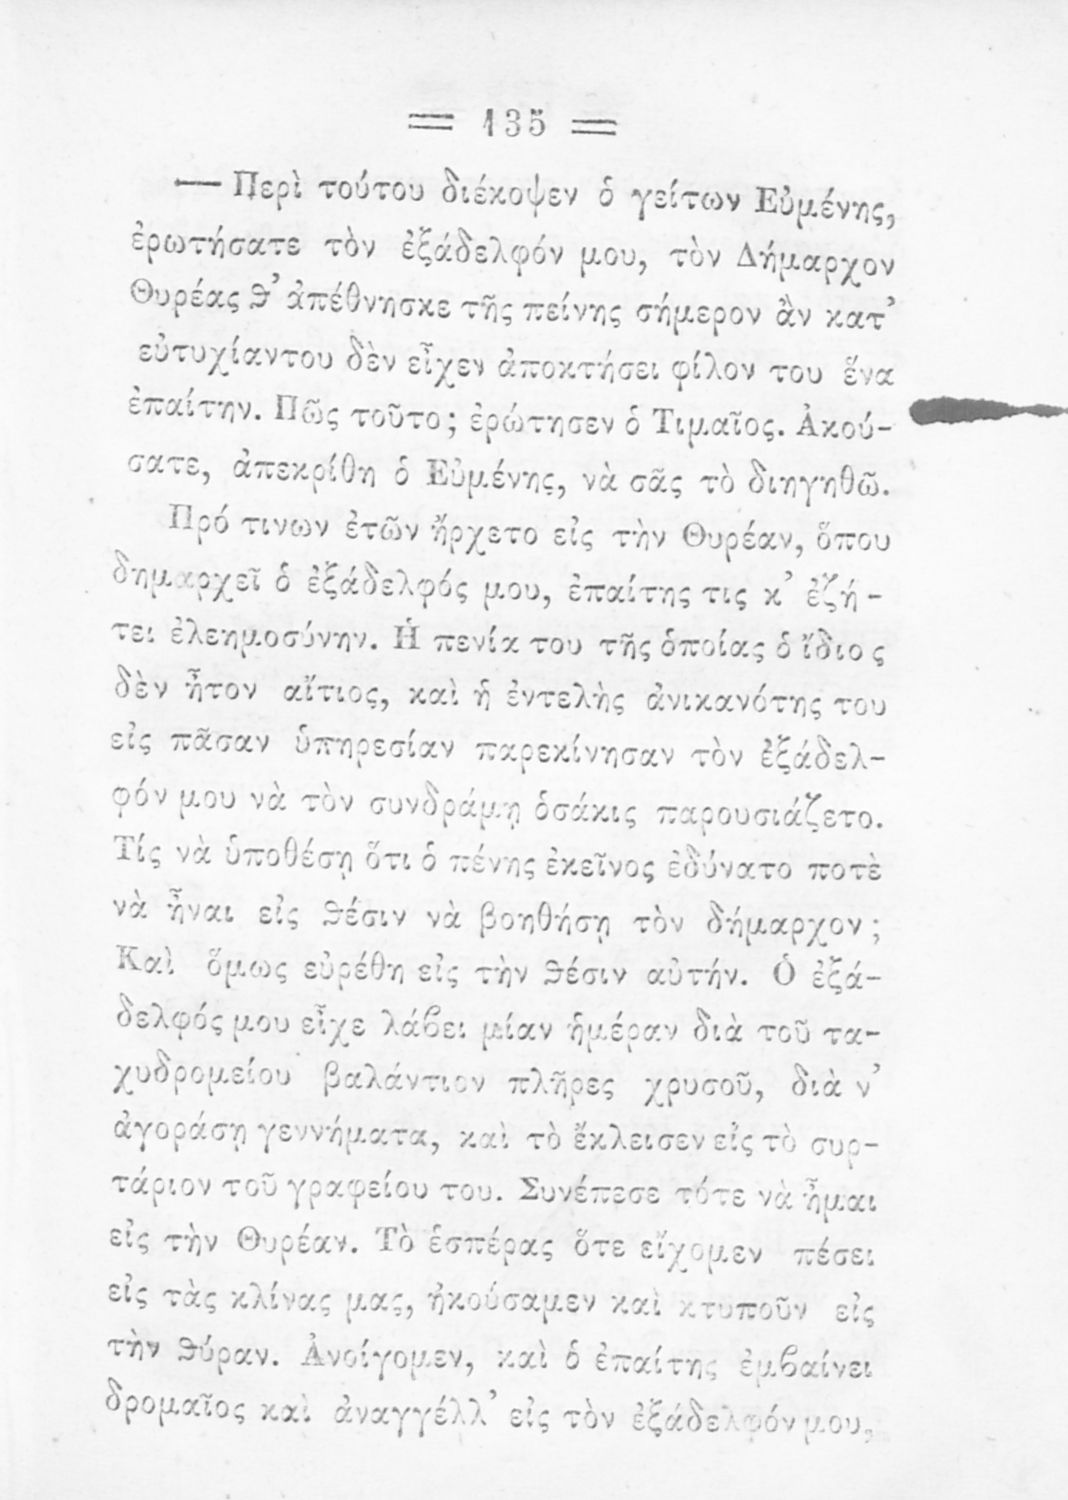 = 135 =
— Περὶ τούτου διέκοψεν ὁ γείτων Εὐμένης,
ἐρωτήσατε τὸν ἐξάδελφόν μου, τὸν Δήμαρχον
Θυρέας ϑ’ ἀπέθνησκε τῆς πείνης σήμερον ἂν κατ’
εὐτυχίαντου δὲν εἶχεν ἀποκτήσει φίλον του ἕνα
ἐπαίτην. Πῶς τοῦτο; ἐρώτησεν ὁ Τιμαῖος. Ἀκού-
σατε, ἀπεκρίθη ὁ Εὐμένης, νὰ σᾶς τὸ διηγηθῶ.
Πρό τινων ἐτῶν ἤρχετο εἰς τὴν Θυρέαν, ὅπου
δημαρχεῖ ὁ ἐξάδελφός μου, ἐπαίτης τις κ’ ἐζή-
τει ἐλεημοσύνην. Ἡ πενία του τῆς ὁποίας ὁ ἴδιος
δὲν ἦτον αἴτιος, καὶ ἡ ἐντελὴς ἀνικανότης του
εἰς πᾶσαν ὑπηρεσίαν παρεκίνησαν τὸν ἐξάδελ-
φόν μου νὰ τὸν συνδράμῃ ὁσάκις παρουσιάζετο.
Τίς νὰ ὑποθέσῃ ὅτι ὁ πένης ἐκεῖνος ἐδύνατο ποτὲ
νὰ ἦναι εἰς ϑέσιν νὰ βοηθήσῃ τὸν δήμαρχον;
Καὶ ὅμως εὑρέθη εἰς τὴν ϑέσιν αὐτήν. Ὁ ἐξά-
δελφός μου εἶχε λάϐει μίαν ἡμέραν διὰ τοῦ τα-
χυδρομείου βαλάντιον πλῆρες χρυσοῦ, διὰ ν’
ἀγοράσῃ γεννήματα, καὶ τὸ ἔκλεισεν εἰς τὸ συρ-
τάριον τοῦ γραφείου του. Συνέπεσε τότε νὰ ἦμαι
εἰς τὴν Θυρέαν. Τὸ ἑσπέρας ὅτε εἴχομεν πέσει
εἰς τὰς κλίνας μας, ἠκούσαμεν καὶ κτυποῦν εἰς
τὴν ϑύραν. Ἀνοίγομεν, καὶ ὁ ἐπαίτης ἐμϐαίνει
δρομαῖος καὶ ἀναγγέλλ’ εἰς τὸν ἐξάδελφόν μου,